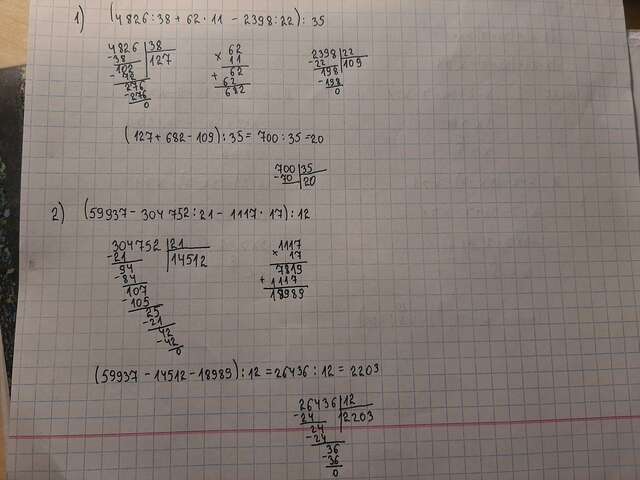 1) (4826:38 + 62·11 - 2398:22) : 35
4826 38
-38 127
102
-76
276
-276
0
62
× 11
62
+ 62
682
2398 22
-22 109
198
-198
0
(127 + 682 - 109) : 35 = 700 : 35 = 20
700 35
-70 20
2) (59937 - 304 752 : 21 - 1117 · 17) : 12
304752 21
-21 14512
94
-84
107
-105
25
-21
42
-42
0
1117
× 17
7819
+ 1117
18989
(59937 - 14512 - 18989) : 12 = 26436 : 12 = 2203
26436 12
-24 2203
24
-24
36
-36
0